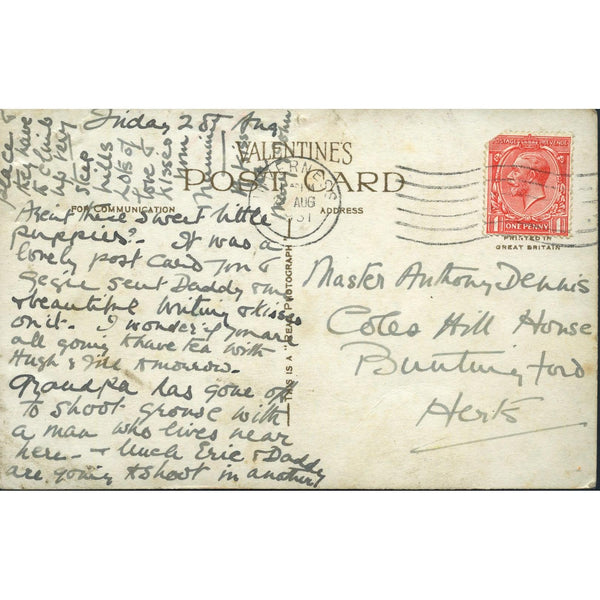 Friday 28th Aug
VALENTINE'S
POST CARD
FOR COMMUNICATION
ADDRESS
THIS IS A "REAL PHOTOGRAPH"
Arent these sweet little
puppies? It was a
lovely post card you &
sent Daddy &
beautiful writing & kisses
on it. I wonder if you are
all going to have tea with
Hugh & Jill tomorrow.
Grandpa has gone off
to shoot grouse with
a man who lives near
here - & Uncle Eric & Daddy
are going to shoot in another
place &
they have
to climb
up very
steep
hills
Lots of
love &
kisses
from
Mummy
AUG
31
POSTAGE REVENUE
ONE PENNY
PRINTED IN
GREAT BRITAIN
Master Anthony Dennis
Coles Hill House
Buntingford
Herts